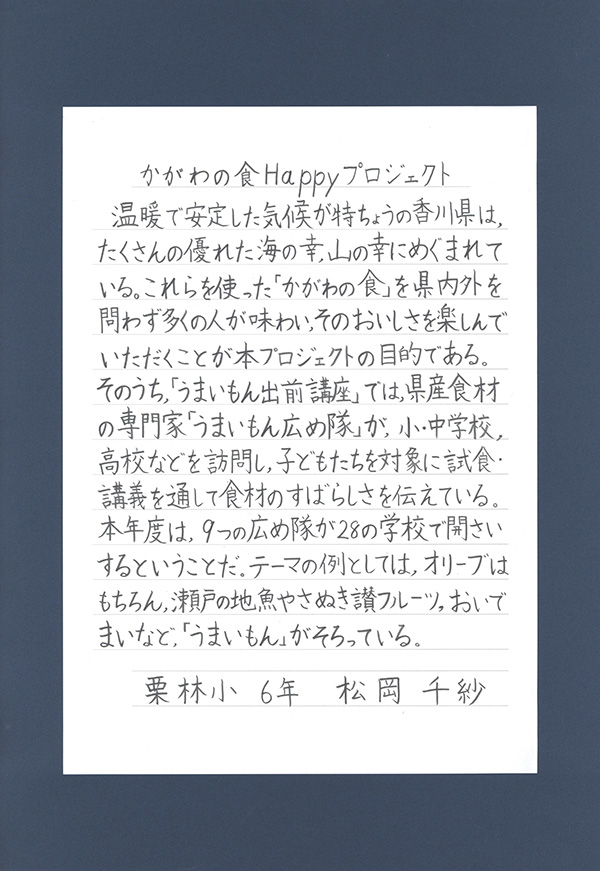 かがわの食Happyプロジェクト
温暖で安定した気候が特ちょうの香川県は,
たくさんの優れた海の幸,山の幸にめぐまれて
いる。これらを使った「かがわの食」を県内外を
問わず多くの人が味わい,そのおいしさを楽しんで
いただくことが本プロジェクトの目的である。
そのうち,「うまいもん出前講座」では,県産食材
の専門家「うまいもん広め隊」が,小・中学校,
高校などを訪問し,子どもたちを対象に試食・
講義を通して食材のすばらしさを伝えている。
本年度は,9つの広め隊が28の学校で開さい
するということだ。テーマの例としては,オリーブは
もちろん,瀬戸の地魚やさぬき讃フルーツ,おいで
まいなど,「うまいもん」がそろっている。
栗林小 6年 松岡 千紗